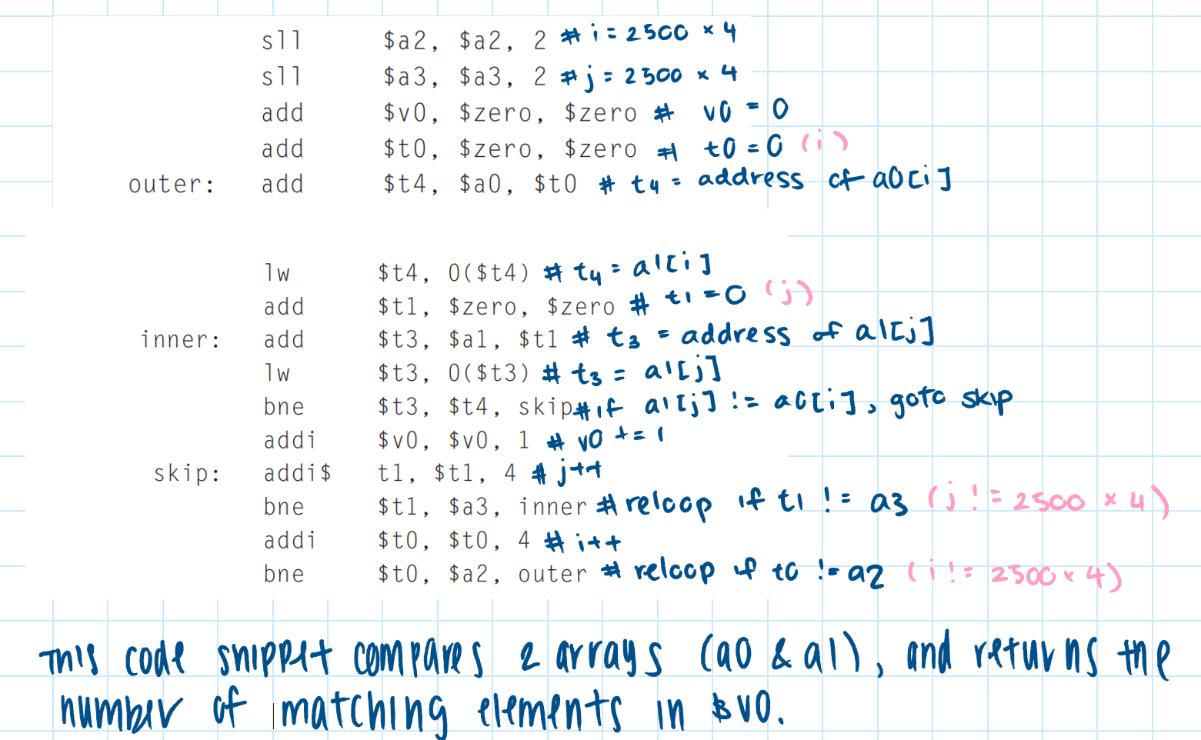 sll $a2, $a2, 2 # i = 2500 × 4
sll $a3, $a3, 2 # j = 2500 × 4
add $v0, $zero, $zero # v0 = 0
add $t0, $zero, $zero # t0 = 0 (i)
outer: add $t4, $a0, $t0 # t4 = address of a0[i]
lw $t4, 0($t4) # t4 = a1[i]
add $t1, $zero, $zero # t1 = 0 (j)
inner: add $t3, $a1, $t1 # t3 = address of a1[j]
lw $t3, 0($t3) # t3 = a1[j]
bne $t3, $t4, skip # if a1[j] != a0[i], goto skip
addi $v0, $v0, 1 # v0 += 1
skip: addi$ t1, $t1, 4 # j++
bne $t1, $a3, inner # reloop if t1 != a3 (j != 2500 × 4)
addi $t0, $t0, 4 # i++
bne $t0, $a2, outer # reloop if t0 != a2 (i != 2500 × 4)
This code snippet compares 2 arrays (a0 & a1), and returns the
number of matching elements in $v0.